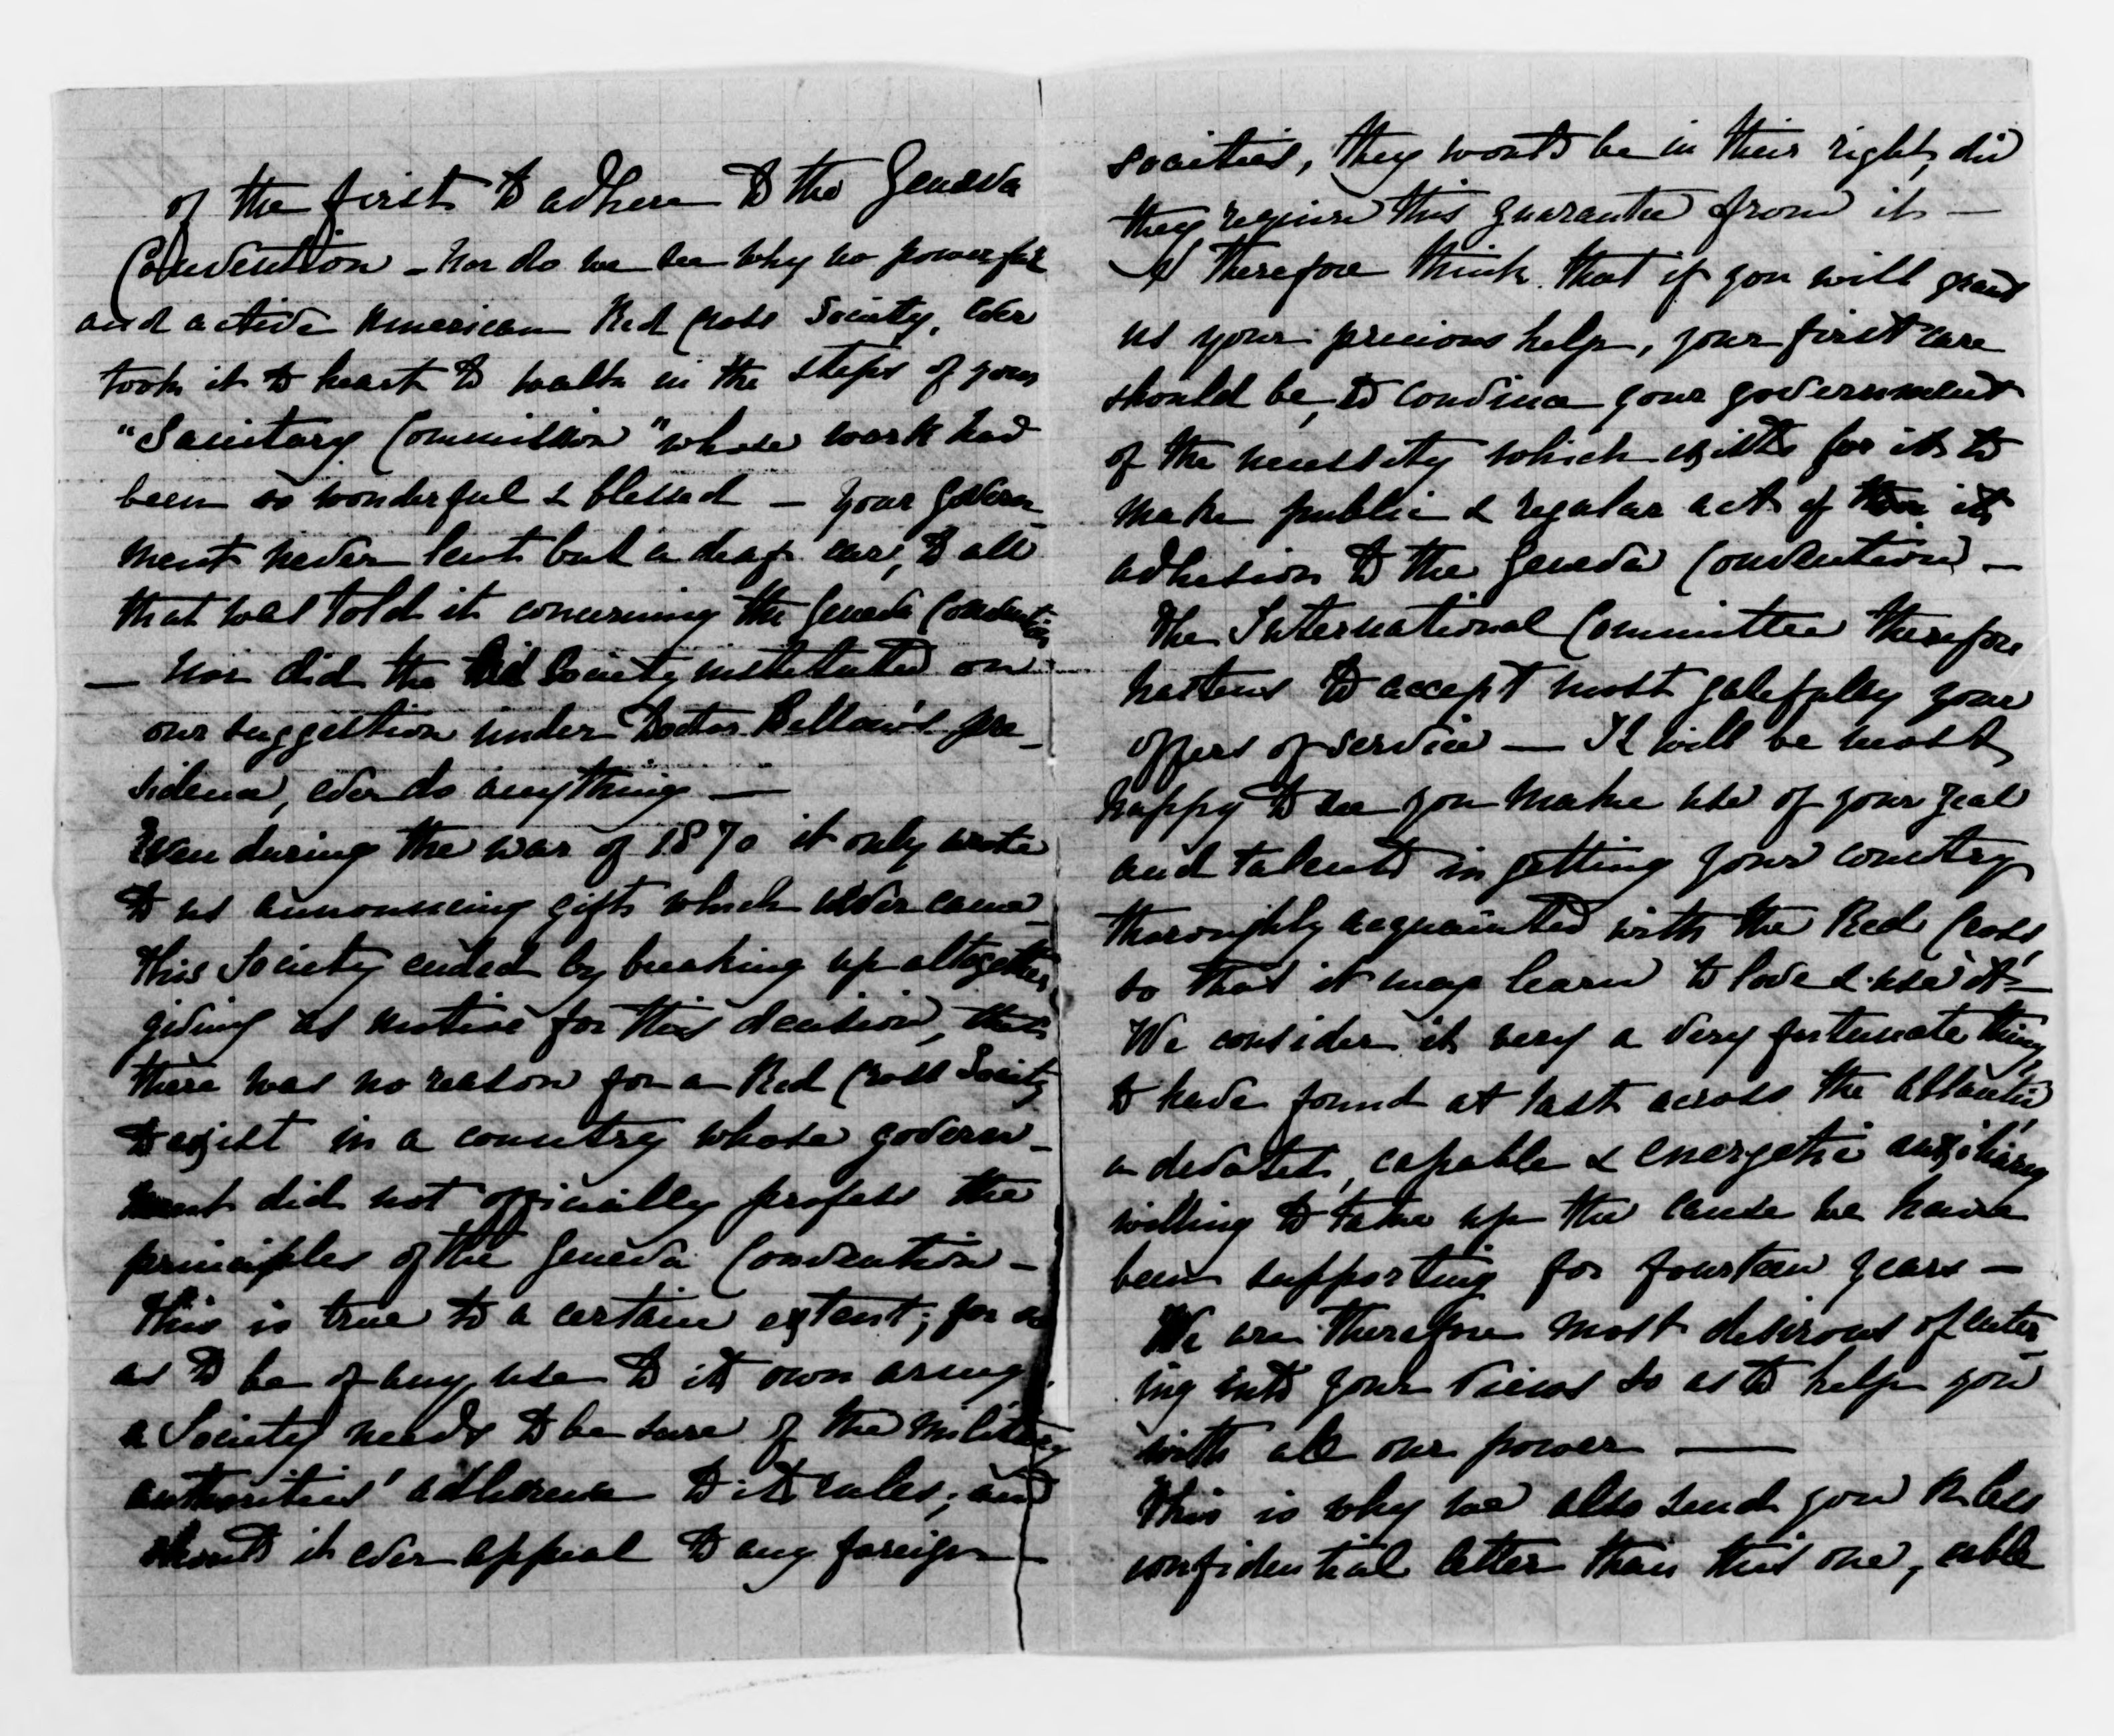 of the first to adhere to the Geneva
Convention – Nor do we see why no powerful
and active American Red Cross Society, ever
took it to heart to walk in the steps of your
"Sanitary Commission" whose work had
been so wonderful & blessed – Your govern-
ment never lent but a deaf ear, to all
that was told it concerning the Geneva Convention
– Nor did the Society instituted on
our suggestion under Doctor Bellow's pre-
sidence, ever do anything –
Even during the war of 1870 it only wrote
to us announcing gifts which never came –
This Society ended by breaking up altogether
giving as motive for this decision, that
there was no reason for a Red Cross Society
to exist in a country whose govern-
ment did not officially profess the
principles of the Geneva Convention –
This is true to a certain extent; for so
as to be of any use to its own army
a Society needs to be sure of the military
authorities' adherence to its rules; and
should it ever appeal to any foreign
societies, they would be in their right, did
they require this guarantee from it –
I therefore think that if you will grant
us your precious help, your first care
should be, to convince your government
of the necessity which exists for its to
make public & regular act of its
adhesion to the Geneva Convention –
The International Committee therefore
hastens to accept most gatefully your
offers of service – It will be most
happy to see you make use of your zeal
and talents in getting your country
thoroughly acquainted with the Red Cross,
so that it may learn to love & use it –
We consider it very a very fortunate thing
to have found at last across the Atlantic
a devoted, capable & energetic auxiliary,
willing to take up the cause we have
been supporting for fourteen years –
We are therefore most desirous of enter-
ing into your views so as to help you
with all our power –
This is why we also send you a less
confidential letter than this one, able